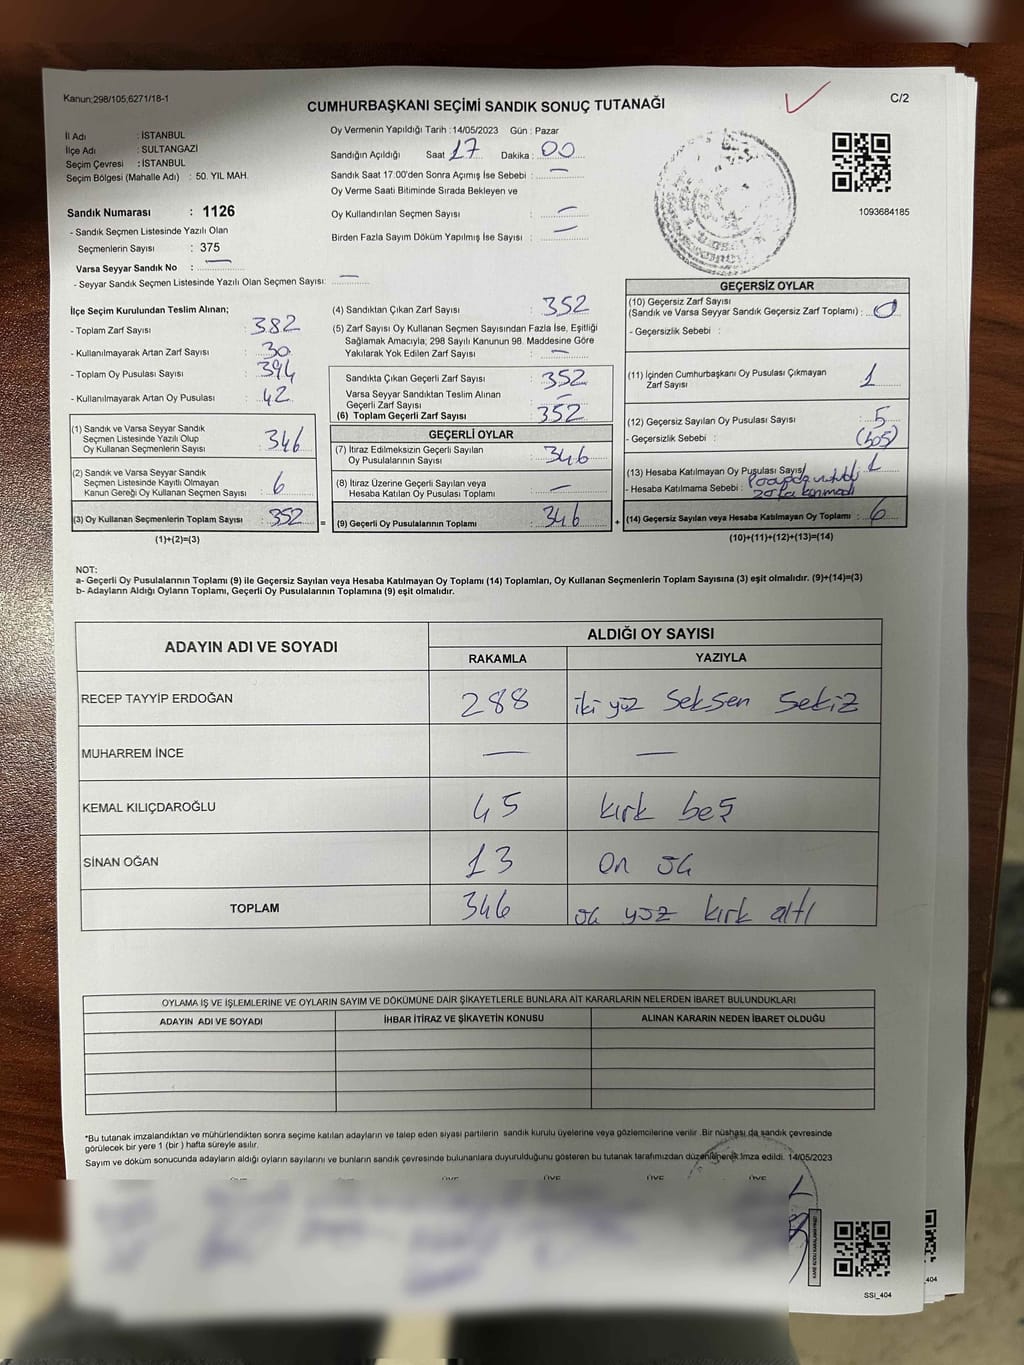 Kanun;298/105;6271/18-1
CUMHURBAŞKANI SEÇİMİ SANDIK SONUÇ TUTANAĞI
C/2
İl Adı : İSTANBUL
İlçe Adı : SULTANGAZİ
Seçim Çevresi : İSTANBUL
Seçim Bölgesi (Mahalle Adı) : 50. YIL MAH.
Sandık Numarası : 1126
- Sandık Seçmen Listesinde Yazılı Olan
Seçmenlerin Sayısı : 375
Varsa Seyyar Sandık No : —
- Seyyar Sandık Seçmen Listesinde Yazılı Olan Seçmen Sayısı: —
Oy Vermenin Yapıldığı Tarih : 14/05/2023 Gün : Pazar
Sandığın Açıldığı Saat 17 Dakika : 00
Sandık Saat 17:00'den Sonra Açımış İse Sebebi : —
Oy Verme Saati Bitiminde Sırada Bekleyen ve
Oy Kullandırılan Seçmen Sayısı : —
Birden Fazla Sayım Döküm Yapılmış İse Sayısı : —
1093684185
İlçe Seçim Kurulundan Teslim Alınan;
- Toplam Zarf Sayısı : 382
- Kullanılmayarak Artan Zarf Sayısı : 30
- Toplam Oy Pusulası Sayısı : 394
- Kullanılmayarak Artan Oy Pusulası : 42
(1) Sandık ve Varsa Seyyar Sandık
Seçmen Listesinde Yazılı Olup
Oy Kullanan Seçmenlerin Sayısı : 346
(2) Sandık ve Varsa Seyyar Sandık
Seçmen Listesinde Kayıtlı Olmayan
Kanun Gereği Oy Kullanan Seçmen Sayısı : 6
(3) Oy Kullanan Seçmenlerin Toplam Sayısı : 352 =
(1)+(2)=(3)
(4) Sandıktan Çıkan Zarf Sayısı : 352
(5) Zarf Sayısı Oy Kullanan Seçmen Sayısından Fazla İse, Eşitliği
Sağlamak Amacıyla; 298 Sayılı Kanunun 98. Maddesine Göre
Yakılarak Yok Edilen Zarf Sayısı : —
Sandıkta Çıkan Geçerli Zarf Sayısı : 352
Varsa Seyyar Sandıktan Teslim Alınan
Geçerli Zarf Sayısı : —
(6) Toplam Geçerli Zarf Sayısı : 352
GEÇERLİ OYLAR
(7) İtiraz Edilmeksizin Geçerli Sayılan
Oy Pusulalarının Sayısı : 346
(8) İtiraz Üzerine Geçerli Sayılan veya
Hesaba Katılan Oy Pusulası Toplamı : —
(9) Geçerli Oy Pusulalarının Toplamı : 346 +
GEÇERSİZ OYLAR
(10) Geçersiz Zarf Sayısı
(Sandık ve Varsa Seyyar Sandık Geçersiz Zarf Toplamı) : 0
- Geçersizlik Sebebi :
(11) İçinden Cumhurbaşkanı Oy Pusulası Çıkmayan
Zarf Sayısı : 1
(12) Geçersiz Sayılan Oy Pusulası Sayısı : 5
- Geçersizlik Sebebi :
(13) Hesaba Katılmayan Oy Pusulası Sayısı
- Hesaba Katılmama Sebebi :
(14) Geçersiz Sayılan veya Hesaba Katılmayan Oy Toplamı : 6
(10)+(11)+(12)+(13)=(14)
NOT:
a- Geçerli Oy Pusulalarının Toplamı (9) ile Geçersiz Sayılan veya Hesaba Katılmayan Oy Toplamı (14) Toplamları, Oy Kullanan Seçmenlerin Toplam Sayısına (3) eşit olmalıdır. (9)+(14)=(3)
b- Adayların Aldığı Oyların Toplamı, Geçerli Oy Pusulalarının Toplamına (9) eşit olmalıdır.
ADAYIN ADI VE SOYADI
ALDIĞI OY SAYISI
RAKAMLA YAZIYLA
RECEP TAYYİP ERDOĞAN 288 iki yüz seksen sekiz
MUHARREM İNCE — —
KEMAL KILIÇDAROĞLU 45 kırk beş
SİNAN OĞAN 13 on üç
TOPLAM 346 üç yüz kırk altı
OYLAMA İŞ VE İŞLEMLERİNE VE OYLARIN SAYIM VE DÖKÜMÜNE DAİR ŞİKAYETLERLE BUNLARA AİT KARARLARIN NELERDEN İBARET BULUNDUKLARI
ADAYIN ADI VE SOYADI İHBAR İTİRAZ VE ŞİKAYETİN KONUSU ALINAN KARARIN NEDEN İBARET OLDUĞU
*Bu tutanak imzalandıktan ve mühürlendikten sonra seçime katılan adayların ve talep eden siyasi partilerin sandık kurulu üyelerine veya gözlemcilerine verilir .Bir nüshası da sandık çevresinde
görülecek bir yere 1 (bir ) hafta süreyle asılır.
Sayım ve döküm sonucunda adayların aldığı oyların sayılarını ve bunların sandık çevresinde bulunanlara duyurulduğunu gösteren bu tutanak tarafımızdan düzenlenerek imza edildi. 14/05/2023
SSİ_404
404